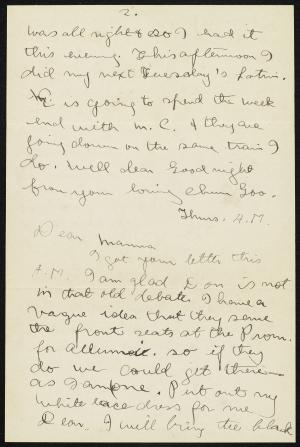 2.
was all right & so I had it
this evening. This afternoon I
did my next Tuesday's Latin.
E is going to spend the week
end with M. C. & they are
going down on the same train I
do. Well dear Good night
from your loving chum Goo.
Thurs. A.M.
Dear Mamma
I got your letter this
A.M. I am glad E on is not
in that old debate. I have a
vague idea that they save
the front seats at the Prom.
for allumni. so if they
do we could get there
as I am one. Put out my
white lace dress for me
Dear. I will bring the black